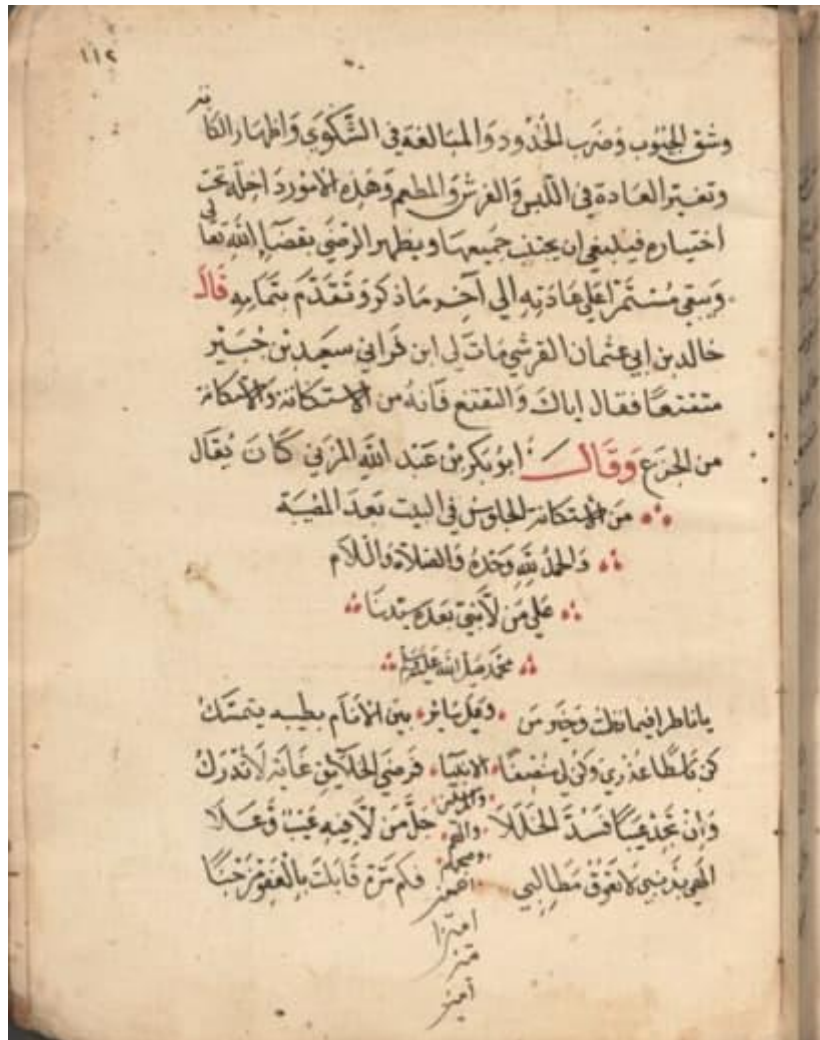 ١١٢
وشق الجيوب وضرب الخدود والمبالغة في الشكوى واظهار الكآبة
وتغيير العادة في اللبس والفرش والمطعم وهذه الامور داخلة تحت
اختياره فينبغي ان يجتنب جميعها ويظهر الرضى بقضا الله تعالى
ويبقي مستمرا على عادته الي آخر ما ذكر وتقدم بتمامه قال
خالد بن ابي عثمان القرشي مات لي ابن فراني سعيد بن جبير
متقنعا فقال اياك والتقنع فانه من الاستكانة والاستكانة
من الجزع وقال ابو بكر بن عبد الله المزني كان يقال
من الاستكانة الجلوس في البيت بعد المصيبة
والحمد لله وحده والصلاة والسلام
على من لا نبي بعده سيدنا
محمد صلى الله عليه وسلم
يا ناظرا فيما بين الانام بطيبه يتمسك
كن باسطا عذري وكن لي منصفا فرضي الخلايق غاية لا تدرك
وان تجد عيبا فسد الخللا جل من لا فيه عيب وعلا
الهي بذنبي لا تعوق مطالبي فكم مرة قابلت بالعفو مذنبا
امين